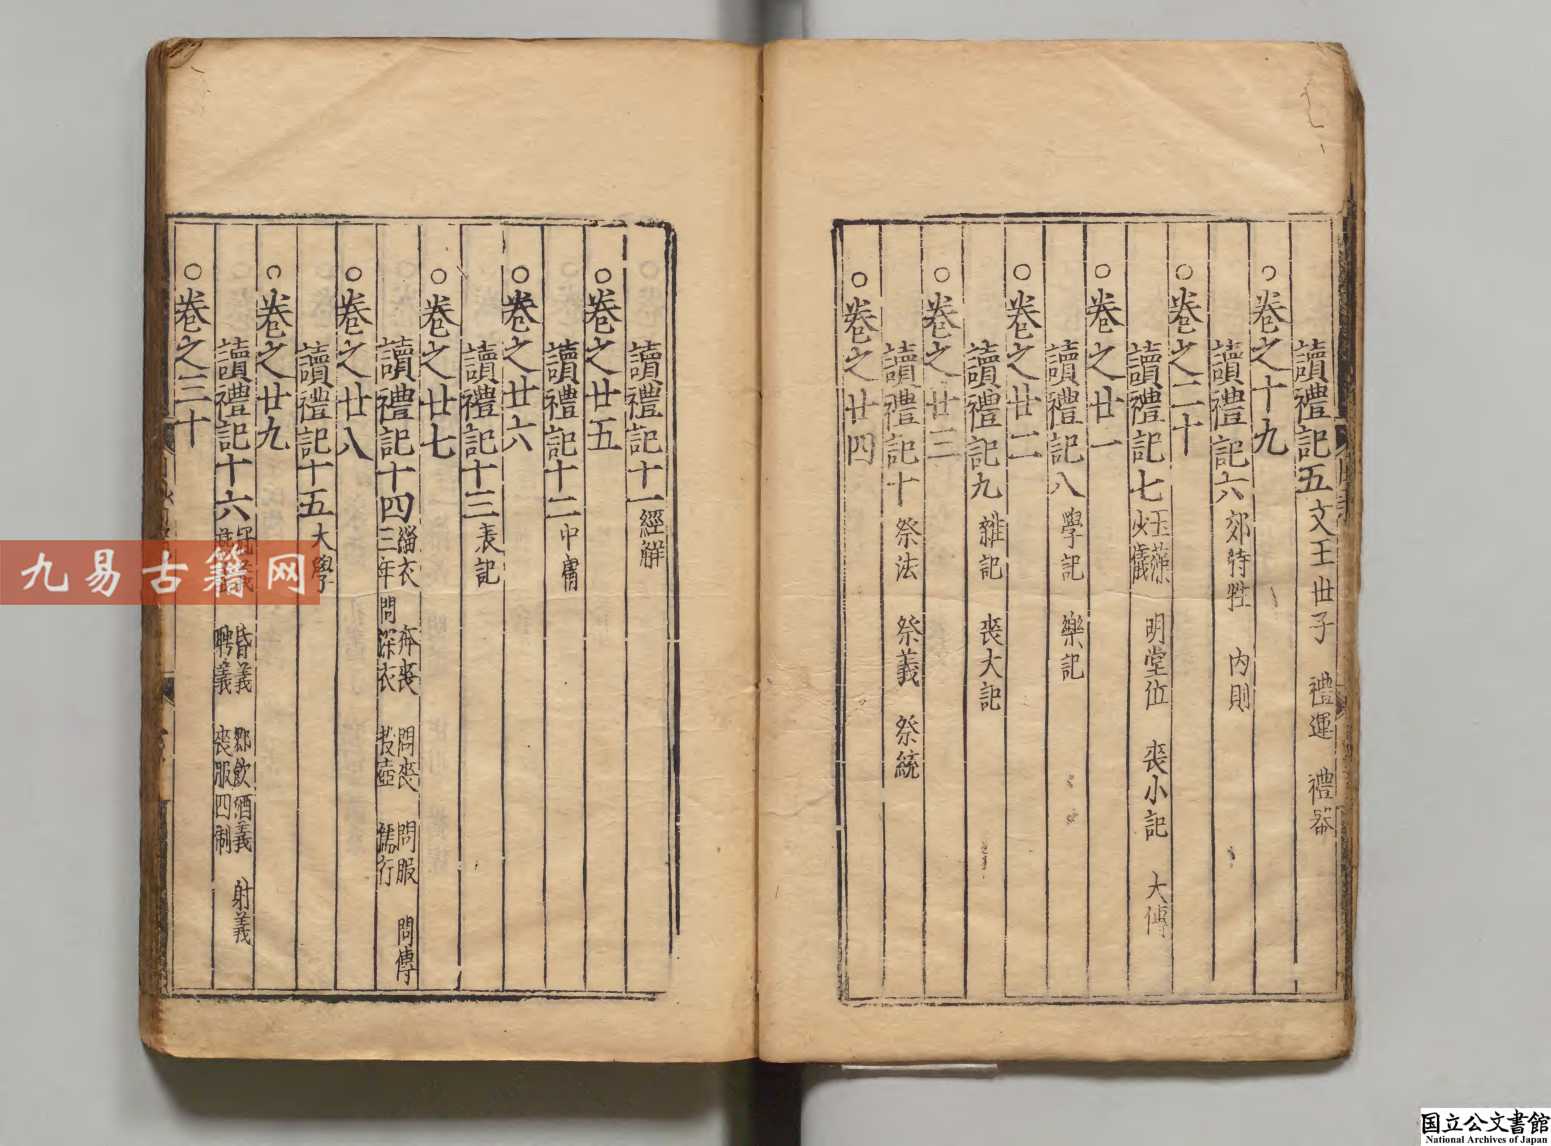 讀禮記五 文王世子 禮運 禮器
○卷之十九
讀禮記六 郊特牲 内則
○卷之二十
讀禮記七 玉藻 明堂位 喪小記 大傳 少儀
○卷之廿一
讀禮記八 學記 樂記
○卷之廿二
讀禮記九 雜記 喪大記
○卷之廿三
讀禮記十 祭法 祭義 祭統
○卷之廿四
讀禮記十一 經解
○卷之廿五
讀禮記十二 中庸
○卷之廿六
讀禮記十三 表記
○卷之廿七
讀禮記十四 緇衣 奔喪 問喪 問服 問傳 三年問 深衣 投壺 儒行
○卷之廿八
讀禮記十五 大學
○卷之廿九
讀禮記十六 昏義 鄉飲酒義 射義 聘義 喪服四制
○卷之三十
九易古籍网
国立公文書館
National Archives of Japan